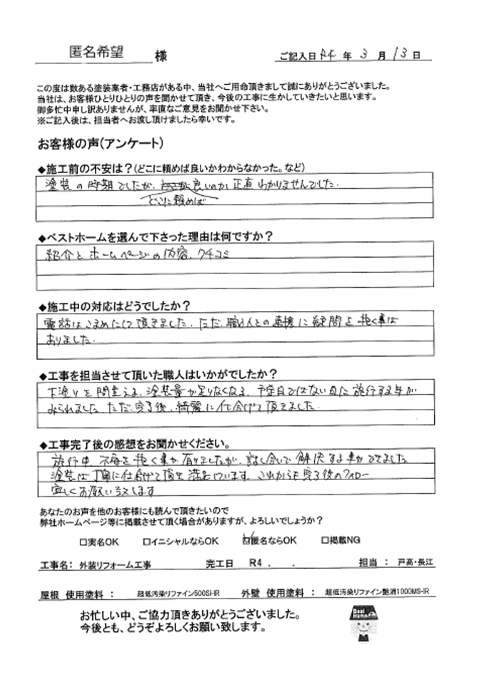 匿名希望 様
ご記入日 R4 年 3 月 13 日
この度は数ある塗装業者・工務店がある中、当社へご用命頂きまして誠にありがとうございました。
当社は、お客様ひとりひとりの声を聞かせて頂き、今後の工事に生かしていきたいと思います。
御多忙中申し訳ありませんが、率直なご意見をお聞かせ下さい。
※ご記入後は、担当者へお渡し頂けましたら幸いです。
お客様の声(アンケート)
◆施工前の不安は?(どこに頼めば良いかわからなかった。など)
塗装の時期でしたが、良いのか正直わかりませんでした.
どこに頼めば
◆ベストホームを選んで下さった理由は何ですか?
紹介とホームページの内容、クチコミ
◆施工中の対応はどうでしたか?
電話はこまめにして頂きました。ただ、職人との連携に疑問を抱く事は
ありました.
◆工事を担当させて頂いた職人はいかがでしたか?
下塗りを間違える、塗装量が足りなくなる、予定日ではない日に施行する事が
みられました ただ、完了後、綺麗に仕上げて頂きました.
◆工事完了後の感想をお聞かせください。
施行中、不安を抱く事が有りましたが、話し合いで解決する事ができました
塗装は丁寧に仕上げて頂き満足しています。これからも完了後のフォロー
宜しくお願い致します
あなたのお声を他のお客様にも読んで頂きたいので
弊社ホームページ等に掲載させて頂く場合がありますが、よろしいでしょうか?
□実名OK □イニシャルならOK ☑匿名ならOK □掲載NG
工事名: 外装リフォーム工事 完工日 R4 . . 担当: 戸高・長江
屋根 使用塗料: 超低汚染リファイン500Si-IR 外壁 使用塗料: 超低汚染リファイン艶消1000MS-IR
お忙しい中、ご協力頂きありがとうございました。
今後とも、どうぞよろしくお願い致します。
Best Home